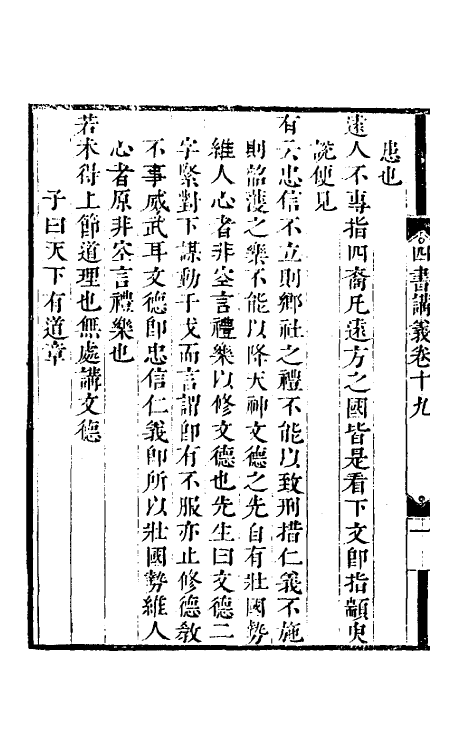 四書講義卷十九
患也
遠人不專指四裔凡遠方之國皆是看下文卽指顓臾
說便見
有云忠信不立則鄉社之禮不能以致刑措仁義不施
則韶濩之樂不能以降天神文德之先自有壯國勢
維人心者非空言禮樂以修文德也先生曰文德二
字緊對下謀動干戈而言謂卽有不服亦止修德敎
不事威武耳文德卽忠信仁義卽所以壯國勢維人
心者原非空言禮樂也
若未得上節道理也無處講文德
子曰天下有道章